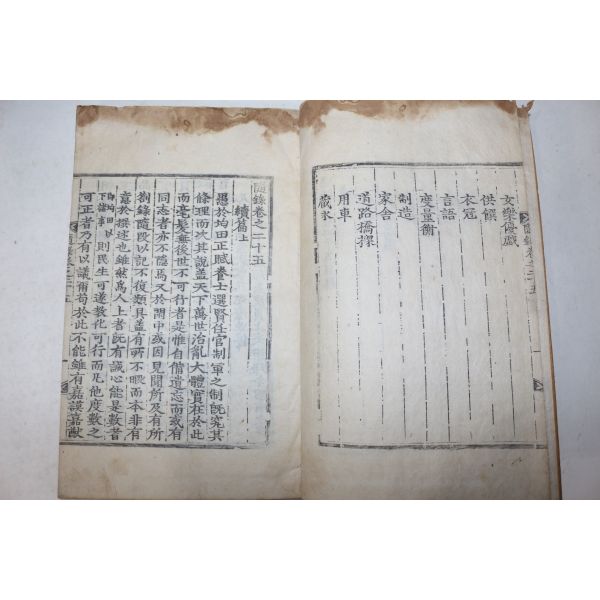 女樂優戲
供饌
衣冠
言語
度量衡
制造
家舍
道路橋梁
用車
藏氷
隨錄卷之二十五
續篇上
愚於均田正賦養士選賢任官制軍之制旣究其
條理而次其說盖天下萬世治亂大體實在於此
而毫髮無後世不可行者是惟自備遺忘而或有
同志者亦不隱焉又於閒中或因見聞所及有所
劄錄隨段以記不復類具盖有所不暇而本非有
意於撰述也雖然爲人上者旣有誠心能是數者
均田以下諸事
則民生可遂敎化可行而凡他度數之
可正者乃有以議爾苟於此不能雖有嘉謨嘉猷